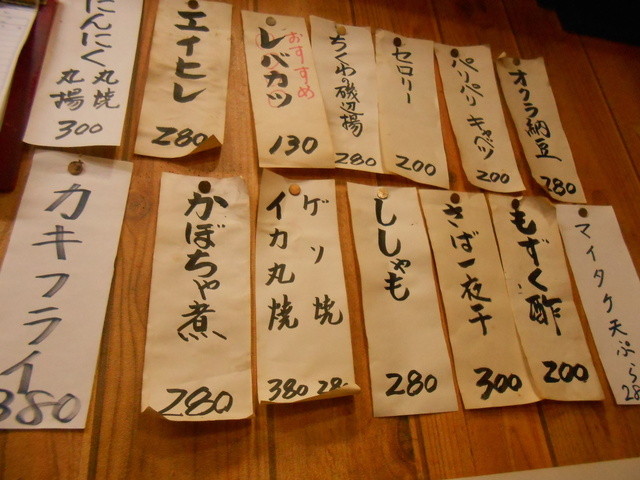 にんにく丸焼
丸揚
300
エイヒレ
280
おすすめ
レバカツ
130
ちくわの磯辺揚
280
セロリー
200
パリパリ キャベツ
200
オクラ納豆
280
カキフライ
380
かぼちゃ煮
280
ゲソ焼
イカ丸焼
380 28
ししゃも
280
さば一夜干
300
もずく酢
200
マイタケ天ぷら
28